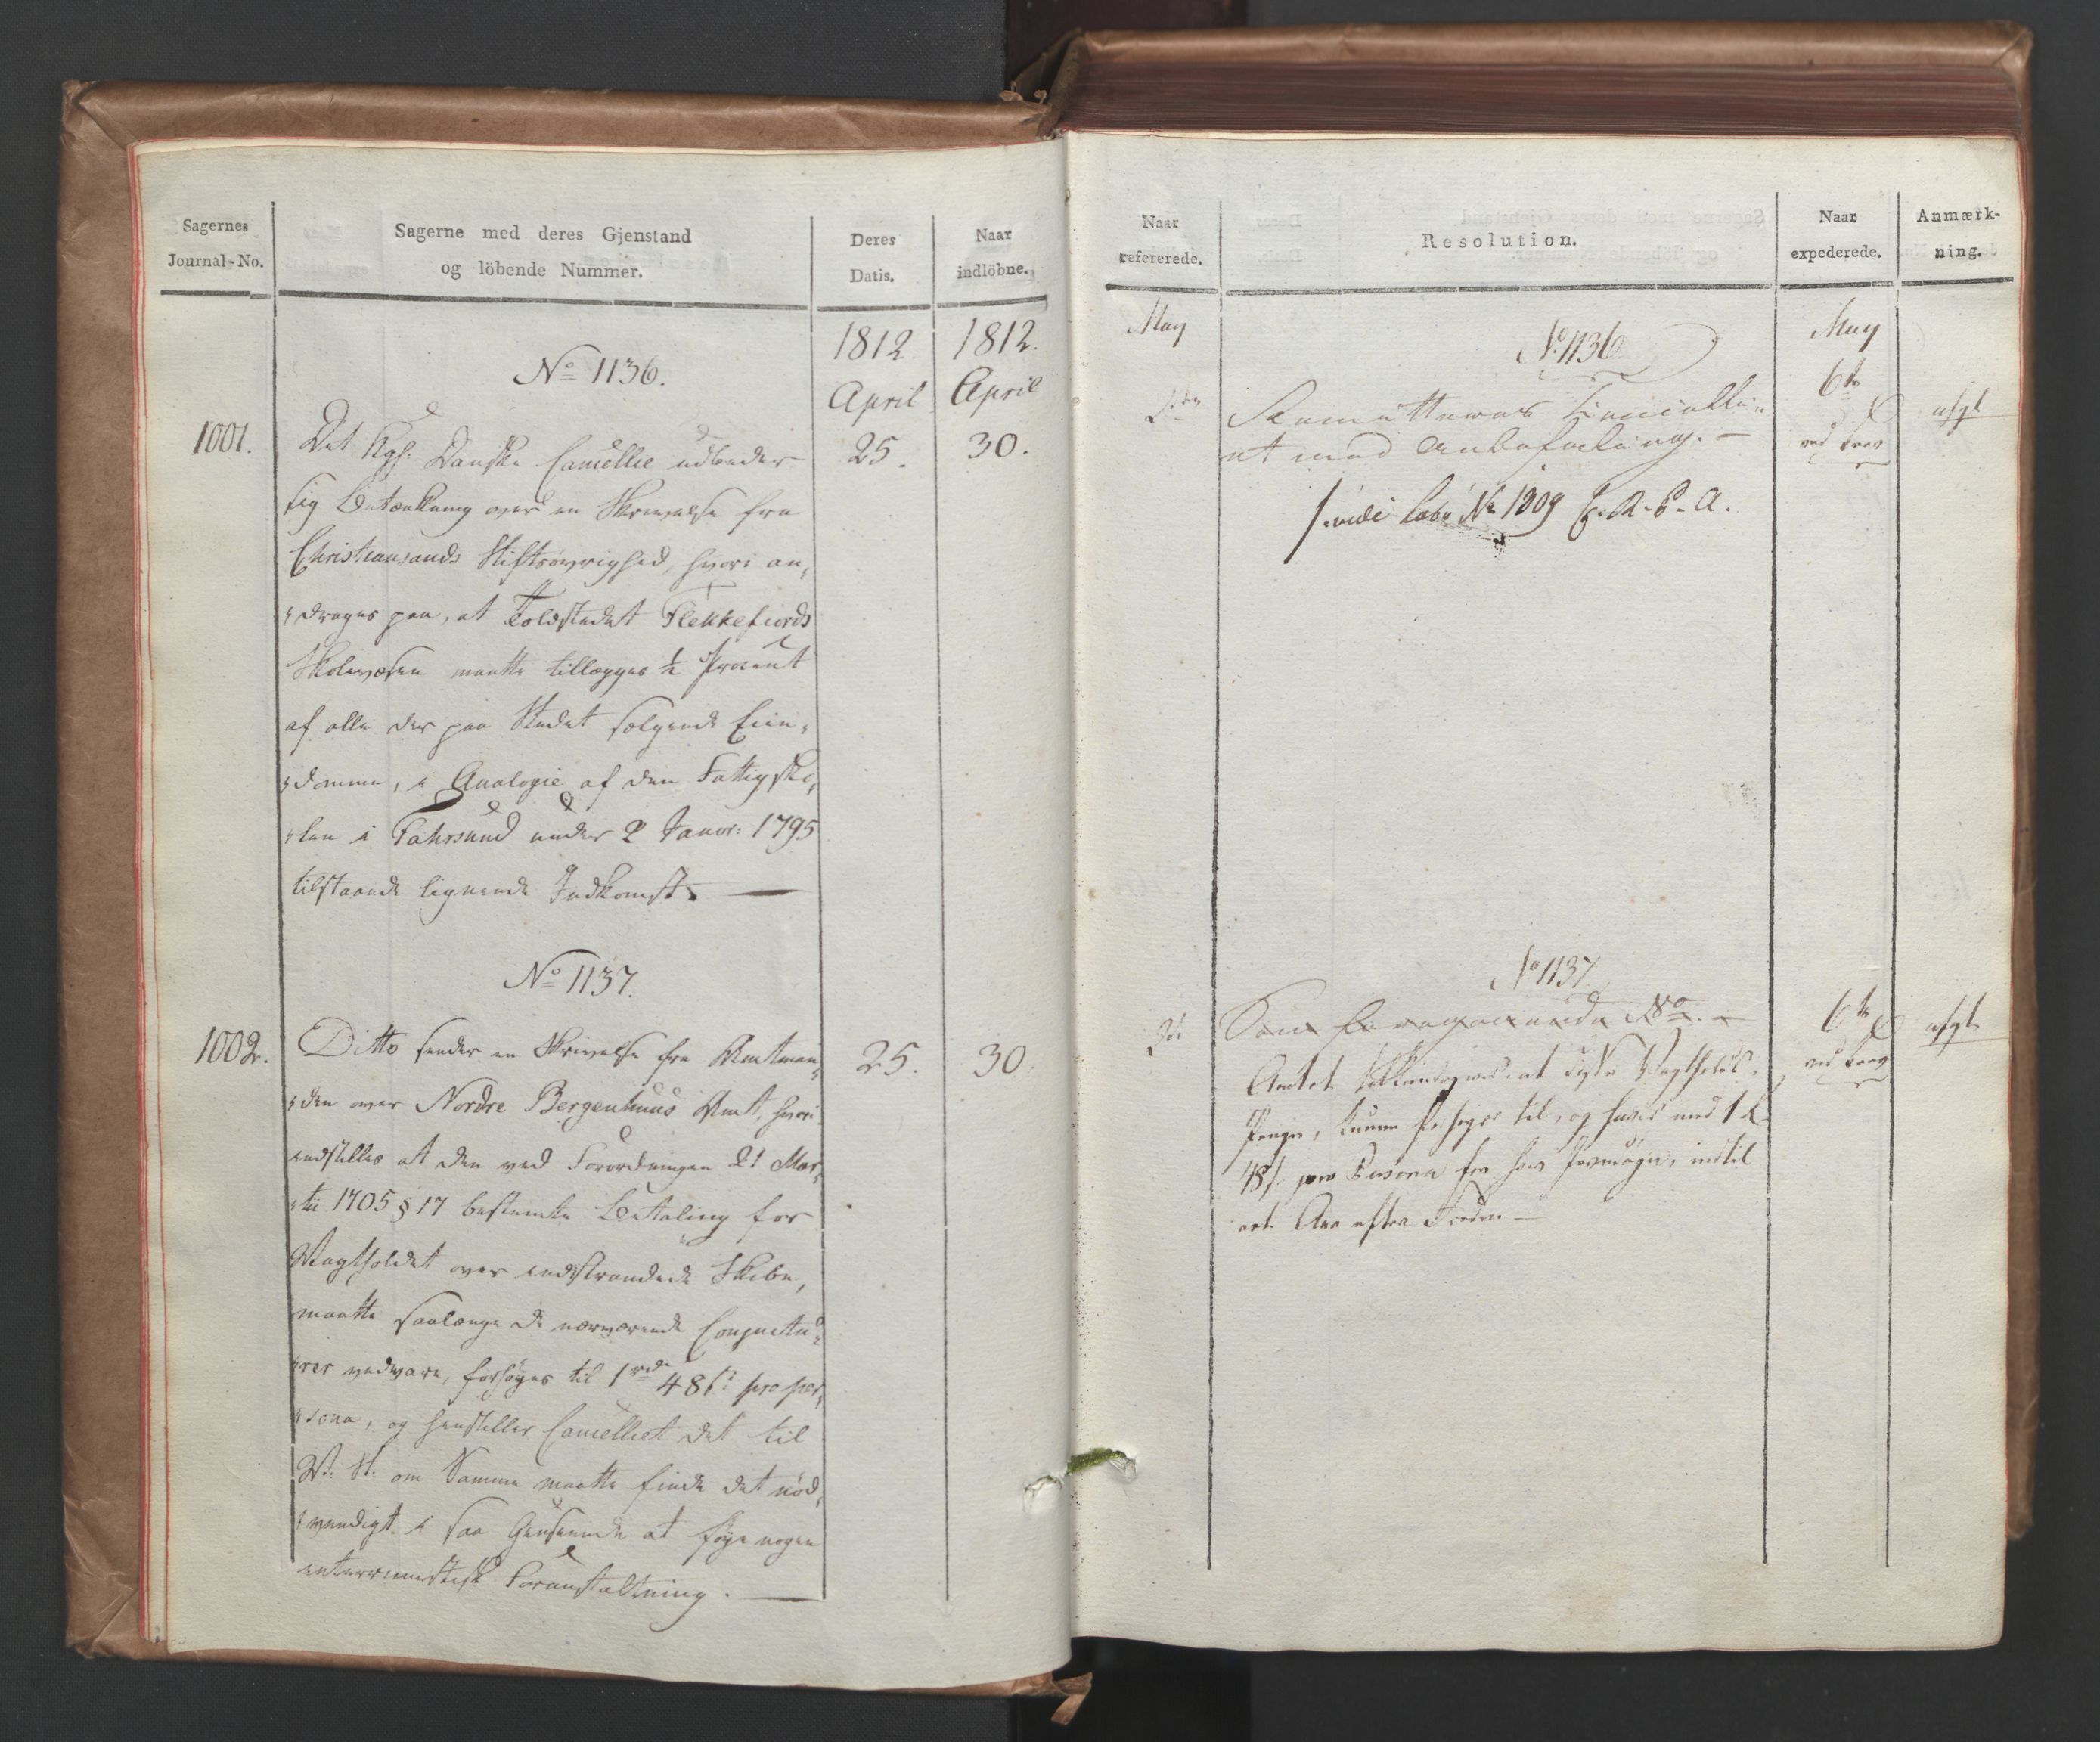 Sagernes
Journal-No.
Sagerne med deres Gjenstand
og löbende Nummer.
Deres
Datis.
Naar
indlöbne.
1812.
April
1812.
April
No 1136.
1001.
25.
30.
Det Kgl. Danske Cancellie udbeder
sig Betænkning over en Skrivelse fra
Christiansands Stiftsøvrighed, hvori an-
drages paa, at Toldstedet Flekkefiords
Skolevæsen maatte tillægges ½ Procent
af alle der paa Stedet sælgende Eien-
domme, i Analogie af den Fattigsko-
len i Fahrsund under 2 Januar: 1795
tilstaaede lignende Indkomst. —
No 1137.
1002.
25.
30.
Ditto sender en Skrivelse fra Amtman-
den over Nordre Bergenhuus Amt, hvori
indstilles at den ved Forordningen 21 Mar-
tii 1705 § 17 bestemte Betaling for
Vagtholdet over indstrandede Skibe,
maatte saalænge de nærværende Conjunctu-
rer vedvare, forhøyes til 1 rd 48 s: pro per-
sona, og henstiller Cancelliet det til
om Samme maatte finde det nød-
vendigt i saa Henseende at føye nogen
interrimistisk Foranstaltning. —
Naar
refererede.
Resolution.
Naar
expederede.
Anmærk-
ning.
May
May
No 1136
2den
6te
Remitteres Cancelli-
et med Anbefaling. —
vide No 1309
No 1137
6te
Som foregaaende No. —
Amtet at disse Vagtholds-
Penge, kunne forhøyes til, og med 1 rd
48 s. pro Persona for hver indtil
eet Aar efter Freden —